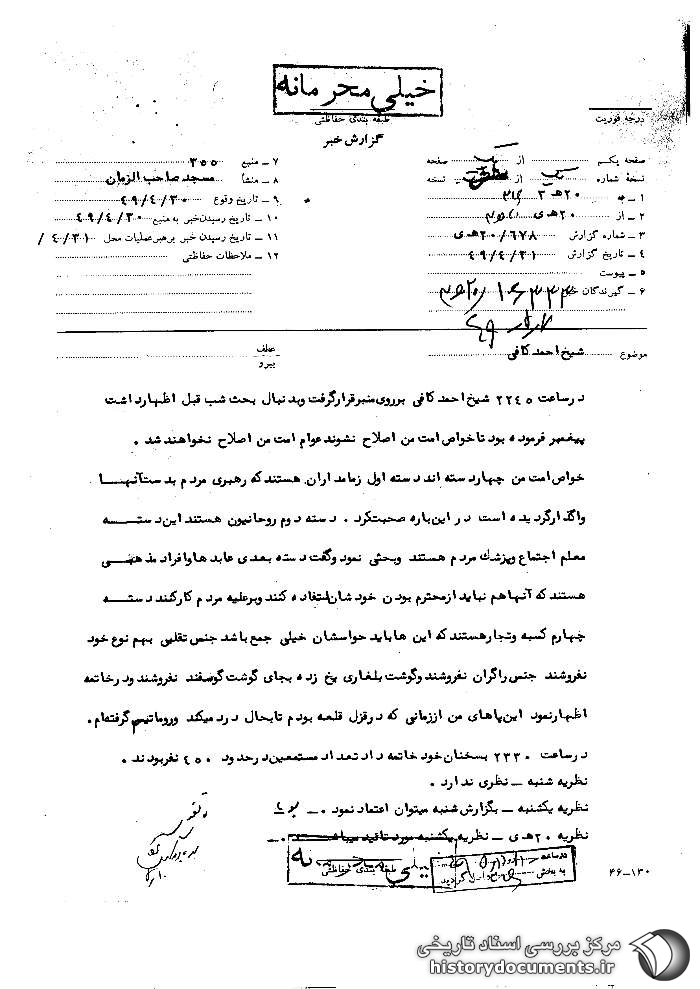 خیلی محرمانه
طبقه بندی حفاظتی
درجه فوریت
گزارش خبر
صفحه یکم از یک صفحه
نسخه شماره یک از نسخه
۱ – به ۲۰ ﻫ ۳
۲ – از ۲۰ ﻫ ی
۳ – شماره گزارش ۲۰/۶۷۸ ﻫ ی
۴ – تاریخ گزارش ۴۹/۴/۳۱
۵ – پیوست
۶ – گیرندگان خبر
۷ – منبع ۳۵۵
۸ – منشأ مسجد صاحب الزمان
۹ – تاریخ وقوع ۴۹/۴/۳۰
۱۰ – تاریخ رسیدن خبر به منبع ۴۹/۴/۳۰
۱۱ – تاریخ رسیدن خبر برهبر عملیات محل ۴/۳۱ /
۱۲ – ملاحظات حفاظتی
موضوع شیخ احمد کافی
عطف
پیرو
در ساعت ۲۲۴۵ شیخ احمد کافی برروی منبر قرار گرفت و بد نبال بحث شب قبل اظهار داشت
پیغمبر فرموده بود تا خواص امت من اصلاح نشوند عوام امت من اصلاح نخواهند شد .
خواص امت من چهار دسته اند دسته اول زمامداران هستند که رهبری مردم بدست آنها
واگذار گردیده است در این باره صحبت کرد . دسته دوم روحانیون هستند این دسته
معلم اجتماع و پزشک مردم هستند وبحثی نمود وگفت دسته بعدی عابد ها وافراد مذهبی
هستند که آنها هم نباید از محترم بودن خودشان استفاده کنند وبر علیه مردم کار کنند دسته
چهارم کسبه وتجار هستند که این ها باید حواسشان خیلی جمع باشد جنس تقلبی بهم نوع خود
نفروشند جنس را گران نفروشند وگوشت بلغاری یخ زده بجای گوشت گوسفند نفروشند ودر خاتمه
اظهار نمود این پاهای من از زمانی که در قزل قلعه بودم تا بحال درد میکند وروماتیسم گرفته ام .
در ساعت ۲۳۳۰ بسخنان خود خاتمه داد تعداد مستمعین در حدود ۴۵۰ نفر بودند .
نظریه شنبه – نظری ندارد .
نظریه یکشنبه – بگزارش شنبه میتوان اعتماد نمود .
نظریه ۲۰ ﻫ ی – نظریه یکشنبه مورد تائید میباشد .
خیلی محرمانه
طبقه بندی حفاظتی
در ساعت
به بخش گردید
۴۶–۱۳۰
مرکز بررسی اسناد تاریخی
historydocuments.ir